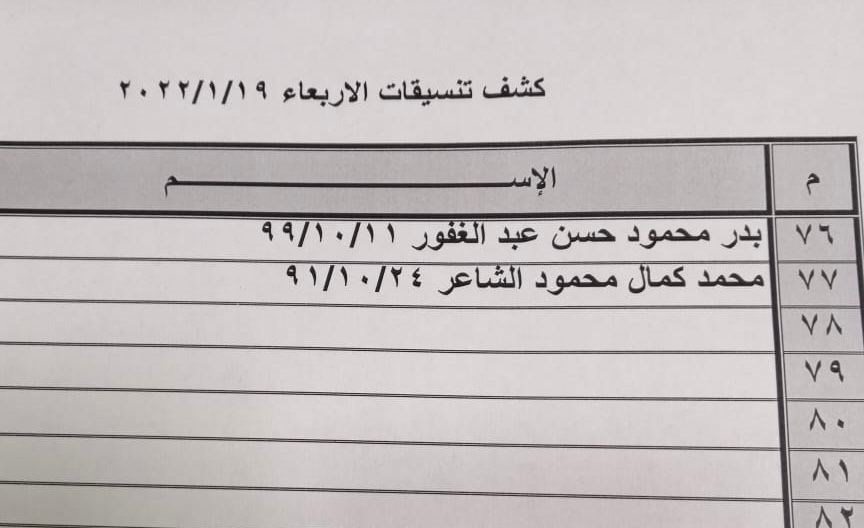 كشف تنسيقات الاربعاء ٢٠٢٢/١/١٩
م الإســـــــــــــــــــــم
٧٦ بدر محمود حسن عبد الغفور ٩٩/١٠/١١
٧٧ محمد كمال محمود الشاعر ٩١/١٠/٢٤
٧٨
٧٩
٨٠
٨١
٨٢